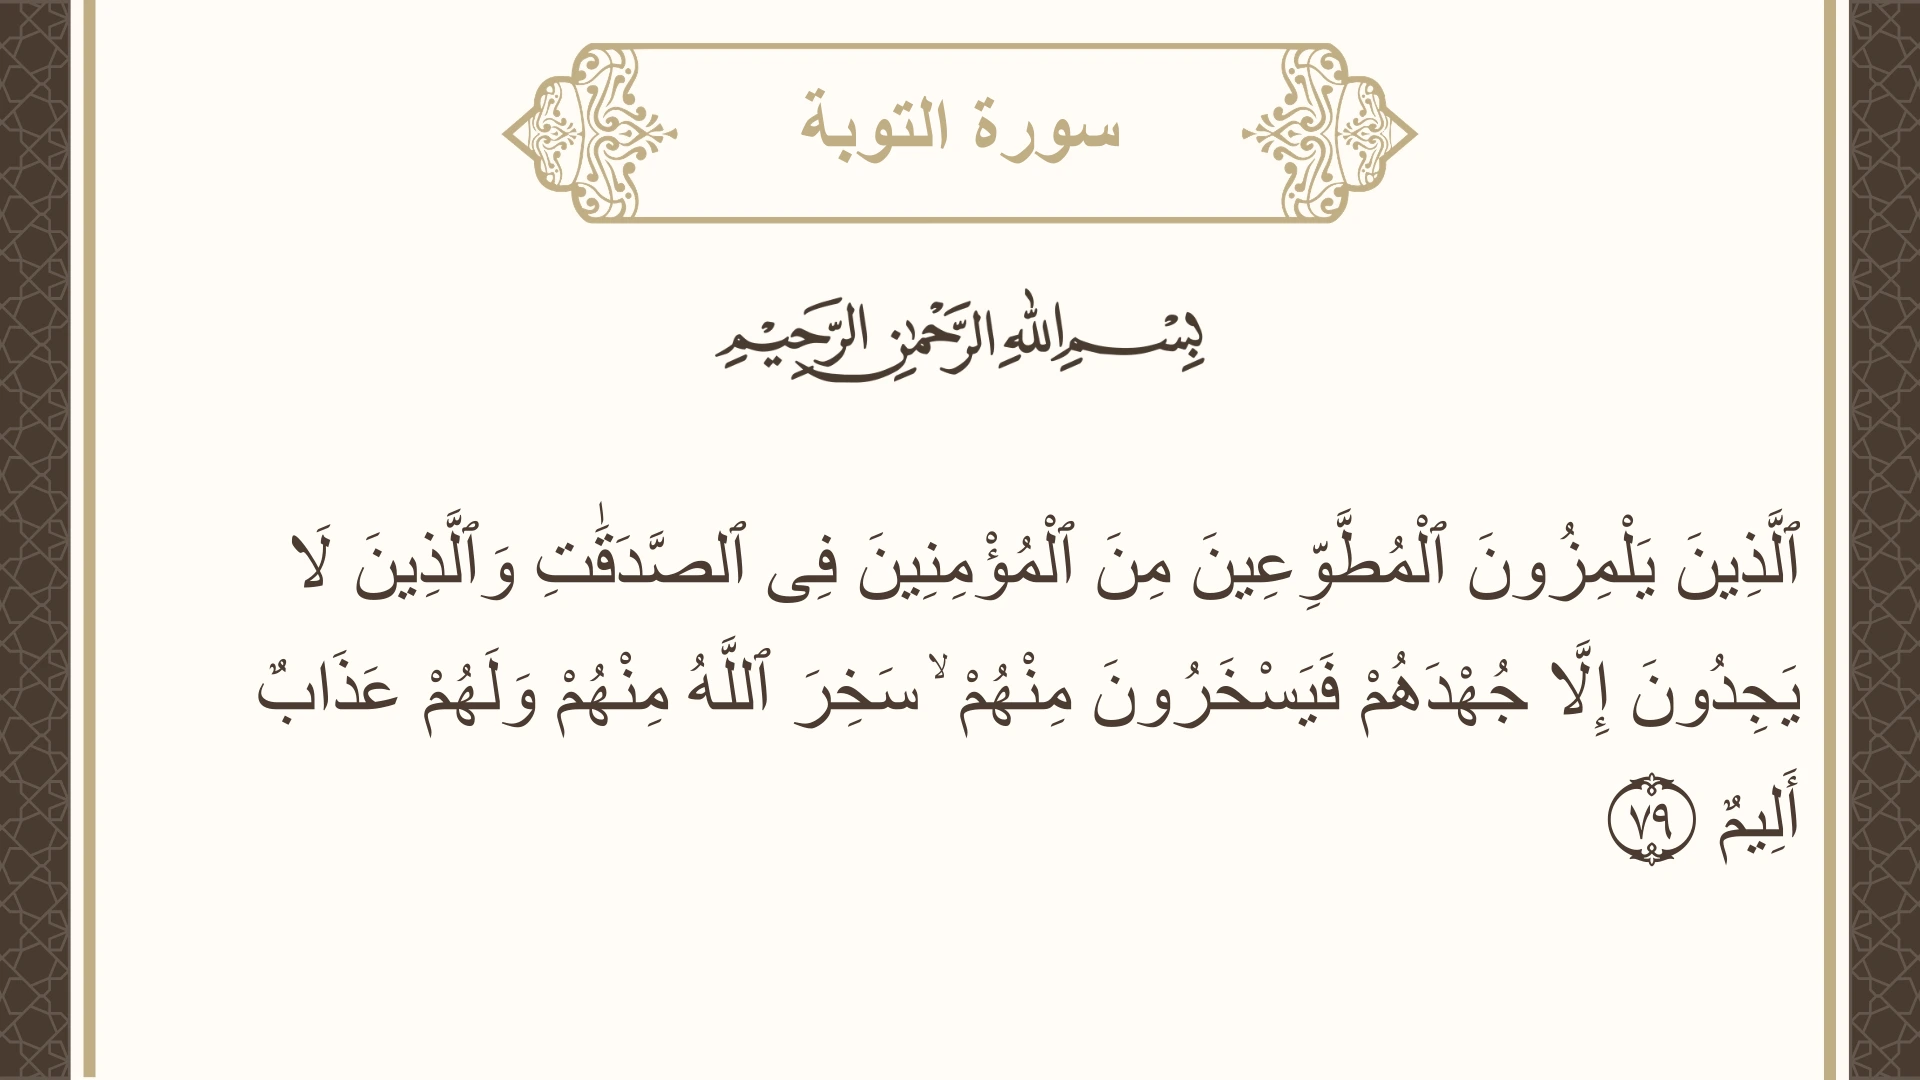 سورة التوبة
بِسْمِ اللهِ الرَّحْمٰنِ الرَّحِيْمِ
ٱلَّذِينَ يَلْمِزُونَ ٱلْمُطَّوِّعِينَ مِنَ ٱلْمُؤْمِنِينَ فِى ٱلصَّدَقَٰتِ وَٱلَّذِينَ لَا
يَجِدُونَ إِلَّا جُهْدَهُمْ فَيَسْخَرُونَ مِنْهُمْ ۙ سَخِرَ ٱللَّهُ مِنْهُمْ وَلَهُمْ عَذَابٌ
أَلِيمٌ ٧٩